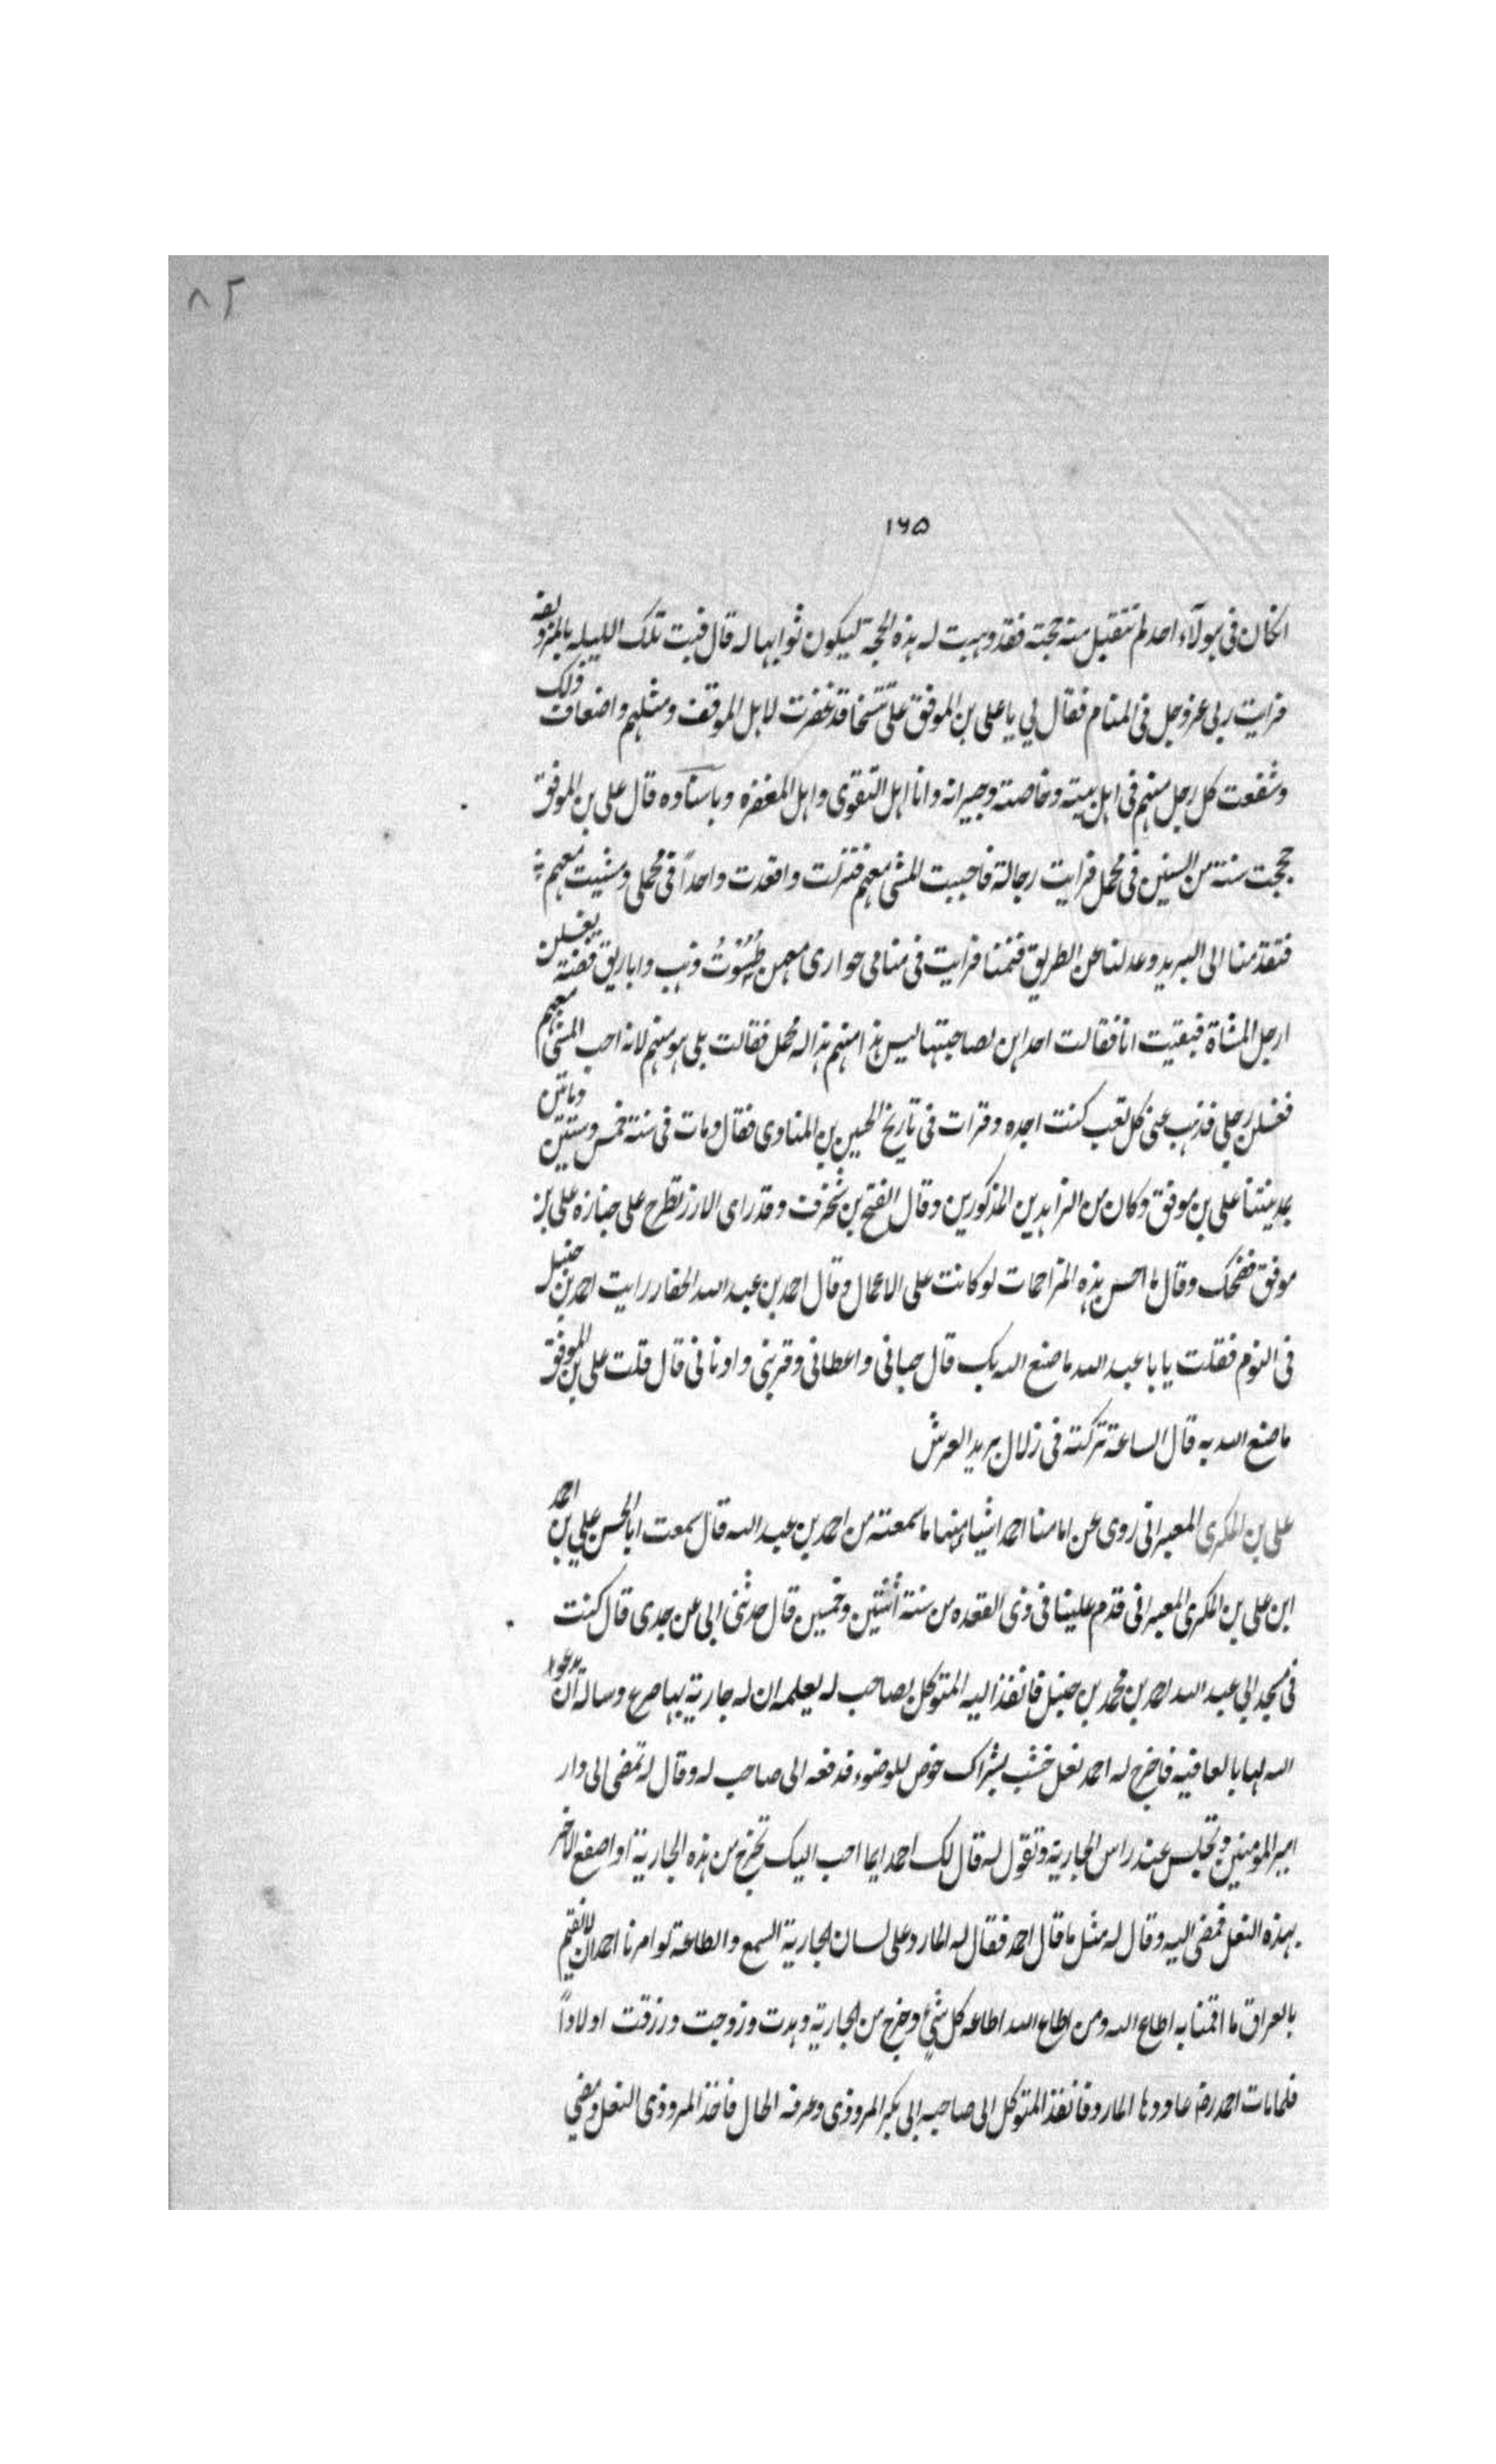 ٨٢
١٦٥
انكان فى هولآء احد لم تتقبل منه حجته فقد وهبت له هذه الحجة ليكون ثوابها له قال فبت تلك الليله بالمزدلفه
فرايت ربى عز وجل فى المنام فقال لي يا على بن الموفق على تتسخا قد غفرت لاهل الموقف ومثلهم واضعاف ذلك
وشفعت كل رجل منهم فى اهل بيته وخاصته وجيرانه وانا اهل التقوى واهل المغفره وباسناده قال على بن الموفق
حججت سنة من السنين فى محمل فرايت رجالة فاحببت المشى معهم فنزلت واقعدت واحداً فى محملى ومشيت معهم
فتقدمنا الى البريد وعدلنا عن الطريق فنمنا فرايت فى منامى جوارى معهن طُسُوْتُ ذهب واباريق فضة يغسلن
ارجل المشاة فبقيت انا فقالت احداهن لصاحبتها ليس هذا منهم هذا له محمل فقالت بلى هو منهم لانه احب المشى معهم
فغسلن رجلى فذهب عنى كل تعب كنت اجده وقرات فى تاريخ الحسين بن المناوى فقال ومات فى سنة خمس وستين وماتين
بمدينتنا على بن موفق وكان من الزاهدين المذكورين وقال الفتح بن شخرف وقد راى الازر تطرح على جنازة على بن
موفق فضحك وقال ما احسن هذه المزاحمات لو كانت على الاعمال وقال احمد بن عبد الله الحفار رايت احمد بن حنبل
فى النوم فقلت يا با عبد الله ما صنع الله بك قال حبانى واعطانى وقربنى وادنانى قال قلت على بن الموفق
ما صنع الله به قال الساعة تركته فى زلال يريد العرش
على بن المكرى المعبرانى روى عن امامنا احمد اشياء منها ما سمعته من احمد بن عبد الله قال سمعت ابا الحسن على بن احمد
ابن على بن المكرى المعبرانى قدم علينا فى ذى القعده من سنة اثنتين وخمسين قال حدثنى ابى عن جدى قال كنت
فى مسجد ابى عبد الله احمد بن محمد بن حنبل فانفذ اليه المتوكل بصاحب له يعلمه ان له جارية بها صرع وساله ان يدعوا
الله لها بالعافيه فاخرج له احمد نعل خشب بشراك خوص للوضوء فدفعه الى صاحب له وقال له تمضى الى دار
امير المومنين وتجلس عند راس الجارية وتقول له قال لك احمد ايما احب اليك تخرج من هذه الجارية او اصفع الاخر
بهذه النعل فمضى اليه وقال له مثل ما قال احمد فقال له المارد على لسان الجارية السمع والطاعة لو امرنا احمد ان لا نقيم
بالعراق ما اقمنا به اطاع الله ومن اطاع الله اطاعه كل شئ وخرج من الجارية وهدت وزوجت ورزقت اولاداً
فلما مات احمد رض عاودها المارد فانفذ المتوكل الى صاحبه ابى بكر المروذى وعرفه الحال فاخذ المروذى النعل ومضى